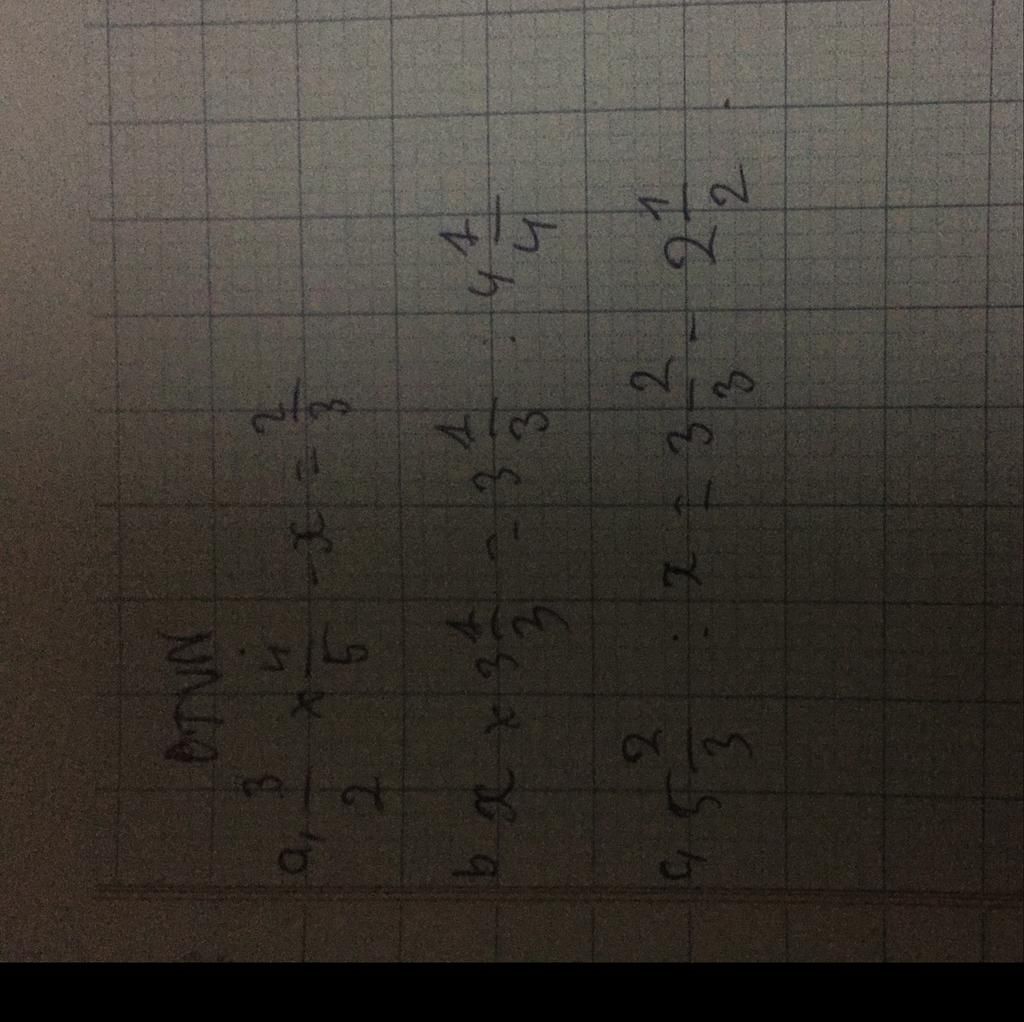 BTVN
a, 3/2 x 4/5 - x = 2/3
b x x 3 1/3 = 3 1/3 : 4 1/4
c, 5 2/3 : x = 3 2/3 - 2 1/2